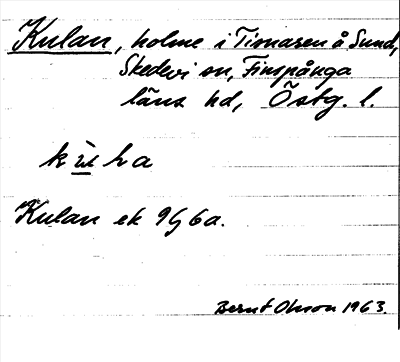 Kulan, holme i Tisnaren å Sund,
Skedevi sn, Finspånga
läns hd, Östg. l.
Kulan ek 9G6a.
Bernt Olsson 1963.